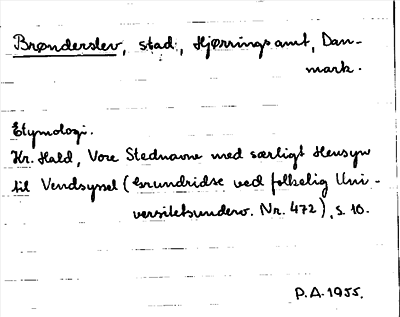 Brønderslev, stad, Hjørrings amt, Dan-
mark.
Etymologi.
Kr. Hald, Vore Stednavne med særligt Hensyn
til Vendsyssel (Grundridse ved folkelig Uni-
versitetsunderv. Nr. 472), s. 10.
P.A. 1955.